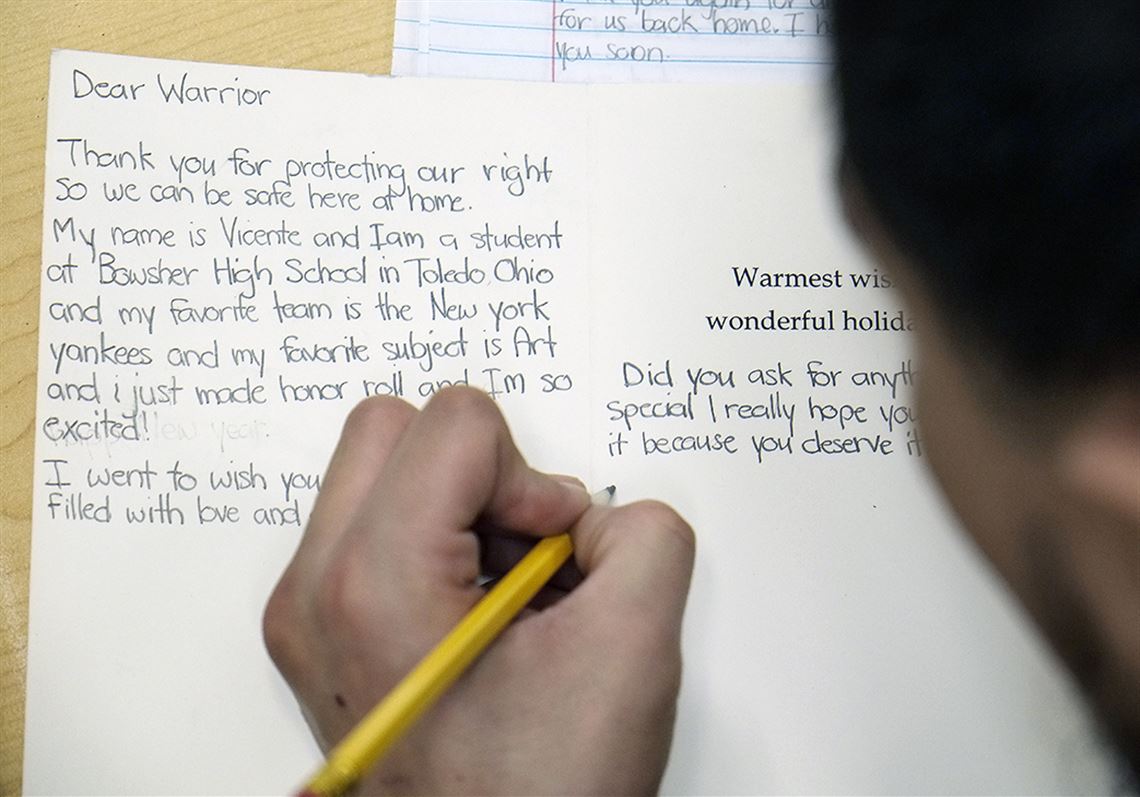 for us back home. I
you soon.
Dear Warrior
Thank you for protecting our right
so we can be safe here at home.
My name is Vicente and I am a student
at Bowsher High School in Toledo, Ohio
and my favorite team is the New york
yankees and my favorite subject is Art
and i just made honor roll and Im so
excited!
I went to wish you
filled with love and
Warmest
wonderful
Did you ask for
special I really hope
it because you deserve